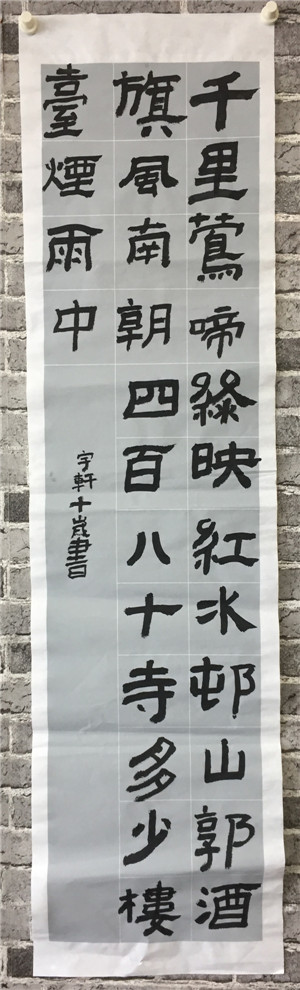 千里鶯啼綠映紅水邨山郭酒
旗風南朝四百八十寺多少樓
臺煙雨中
宇軒十歲書